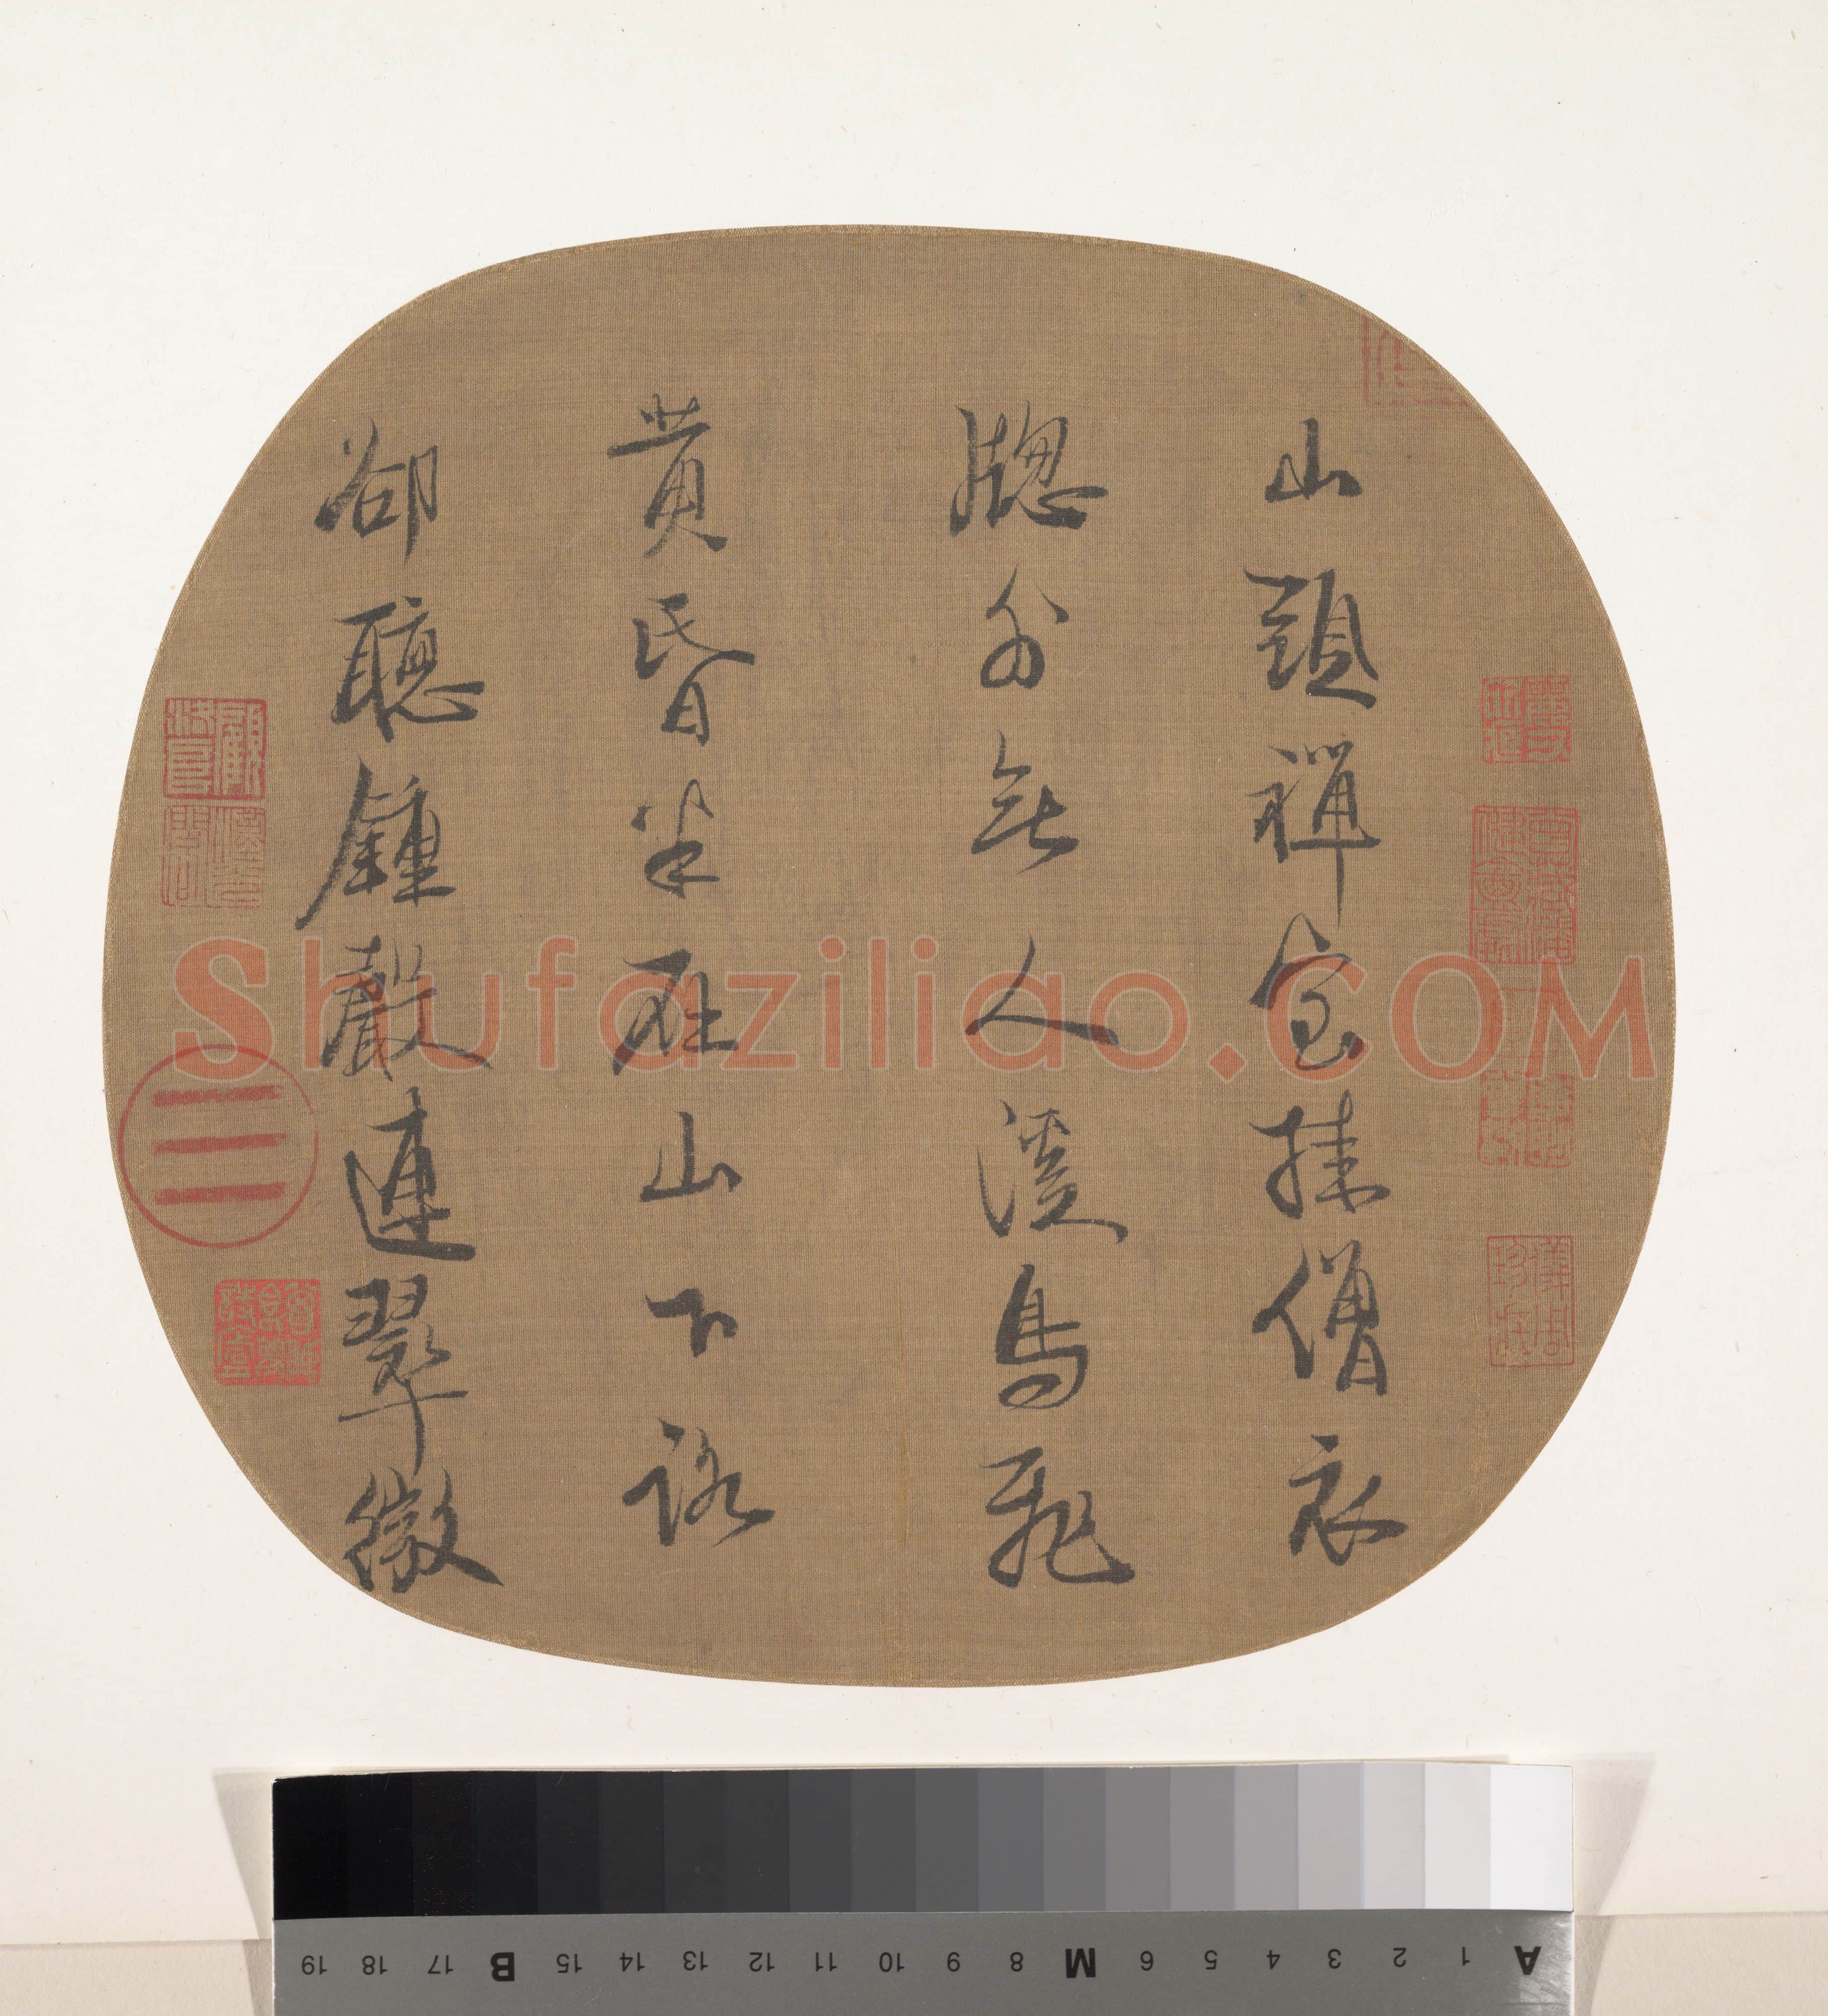 山頭禪室挂僧衣
牕外無人溪鳥飛
黄昏半在山下路
卻聽鍾聲連翠微
Shufaziliao.COM
A 1 2 3 4 5 6 M 8 9 10 11 12 13 14 15 B 17 18 19